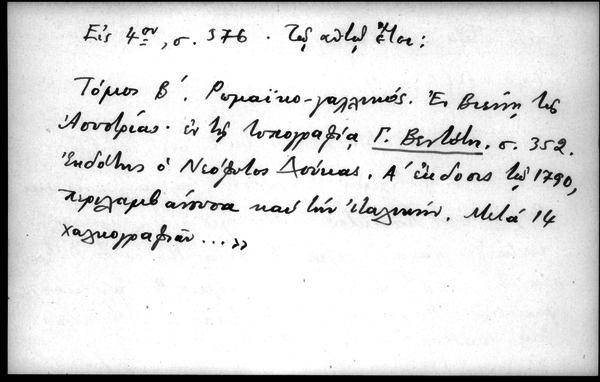 Εἰς 4ον, σ. 376 · Τῷ αὐτῷ ἔτει:
Τόμος Β΄. Ρωμαϊκο-γαλλικός. Ἐν Βιέννῃ τῆς
Ἀουστρίας· ἐν τῇ τυπογραφίᾳ Γ. Βεντότη. σ. 352.
Ἐκδότης ὁ Νεόφυτος Δούκας. Α΄ ἔκδοσις τῷ 1790,
περιλαμβάνουσα καὶ τὴν ἰταλικήν. Μετὰ 14
χαλκογραφιῶν...»